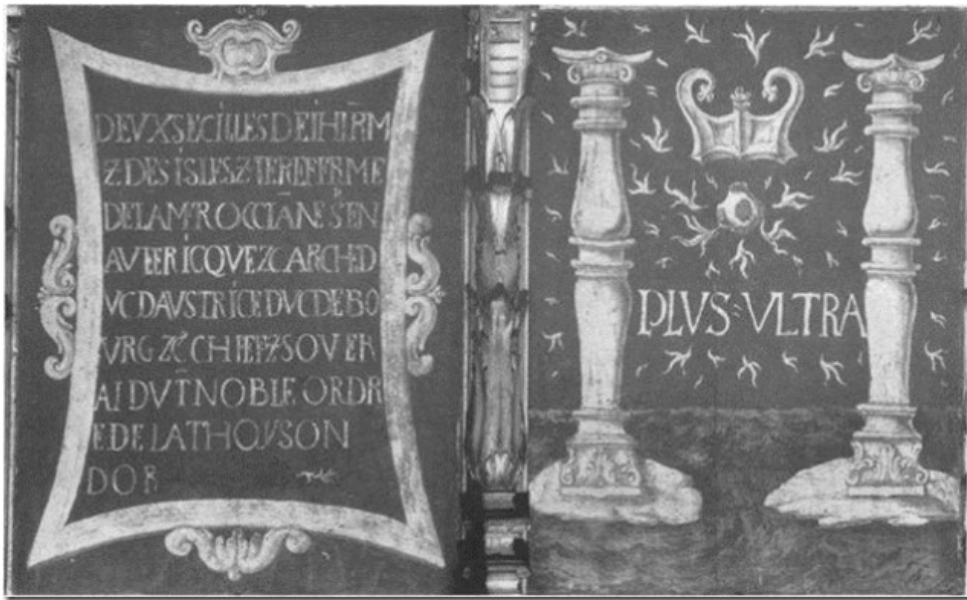 DEVX SECILLES DE IHLRM
Z DES ISLES Z TEREFERME
DE LA MR OCCIANE S EN
AVFERICQVE ZC ARCHED
VC DAVSTRICE DVC DE BO
VRG ZC CHIEF Z SOVER
AI DV T NOBLE ORDR
E DE LA THOVSON
DOR
PLVS VLTRA